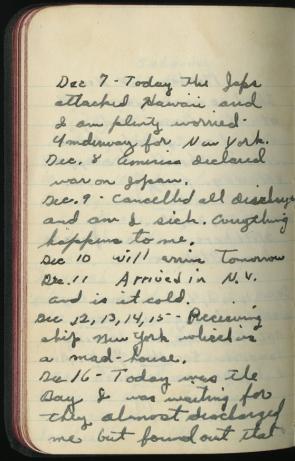 Dec 7 - Today the Japs
attacked Hawaii and
I am plenty worried.
Underway for New York.
Dec. 8 America declared
war on Japan.
Dec. 9 - Cancelled all discharges
and am I sick. Everything
happens to me.
Dec 10 will arrive Tomorrow
Dec. 11 Arrived in N.Y.
and is it cold.
Dec 12, 13, 14, 15 - Receiving
ship New York which is
a mad-house.
Dec 16 - Today was the
Day I was waiting for
they almost discharged
me but found out that